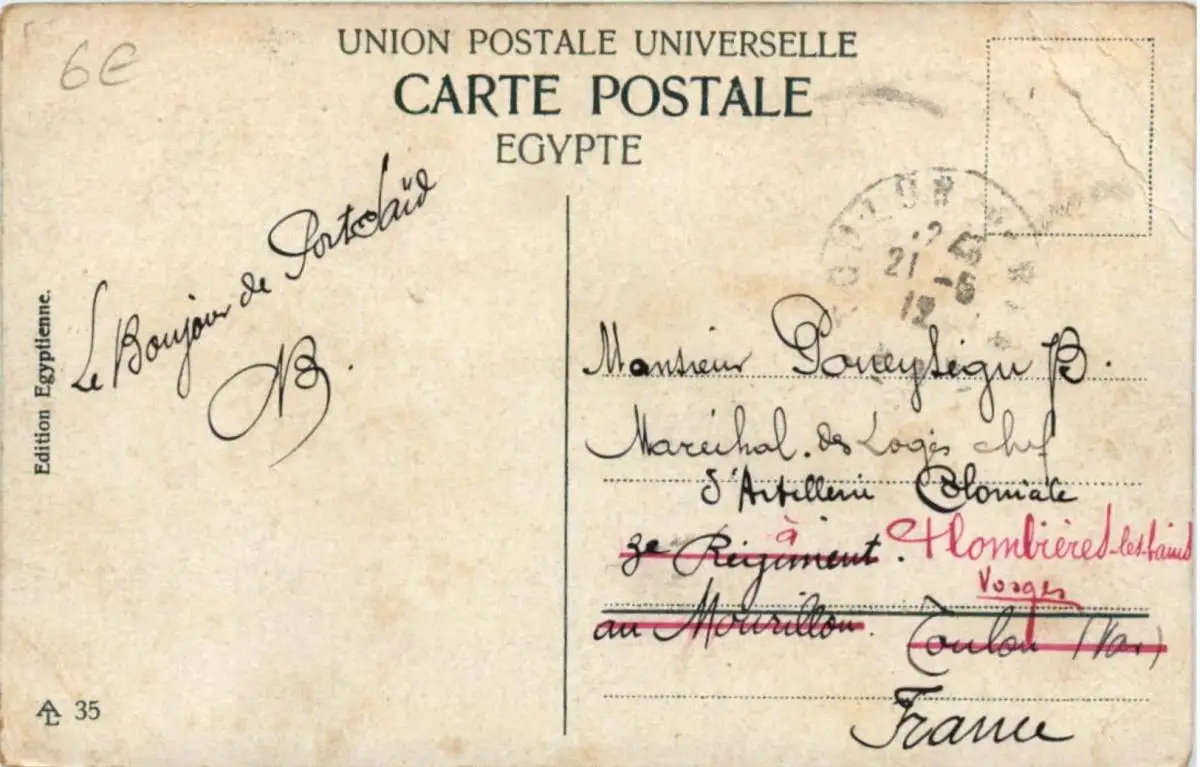 6€
UNION POSTALE UNIVERSELLE
CARTE POSTALE
EGYPTE
Le Bonjour de Portsaïd
B.
Edition Egyptienne.
35
TOULON VAR
21 -5
12
Monsieur Poneysségu B.
Maréchal. des Logis chef
d'Artillerie Coloniale
3e Régiment. à Plombières-les-bains
Vosges
au Mourillon. Toulon (Var)
France